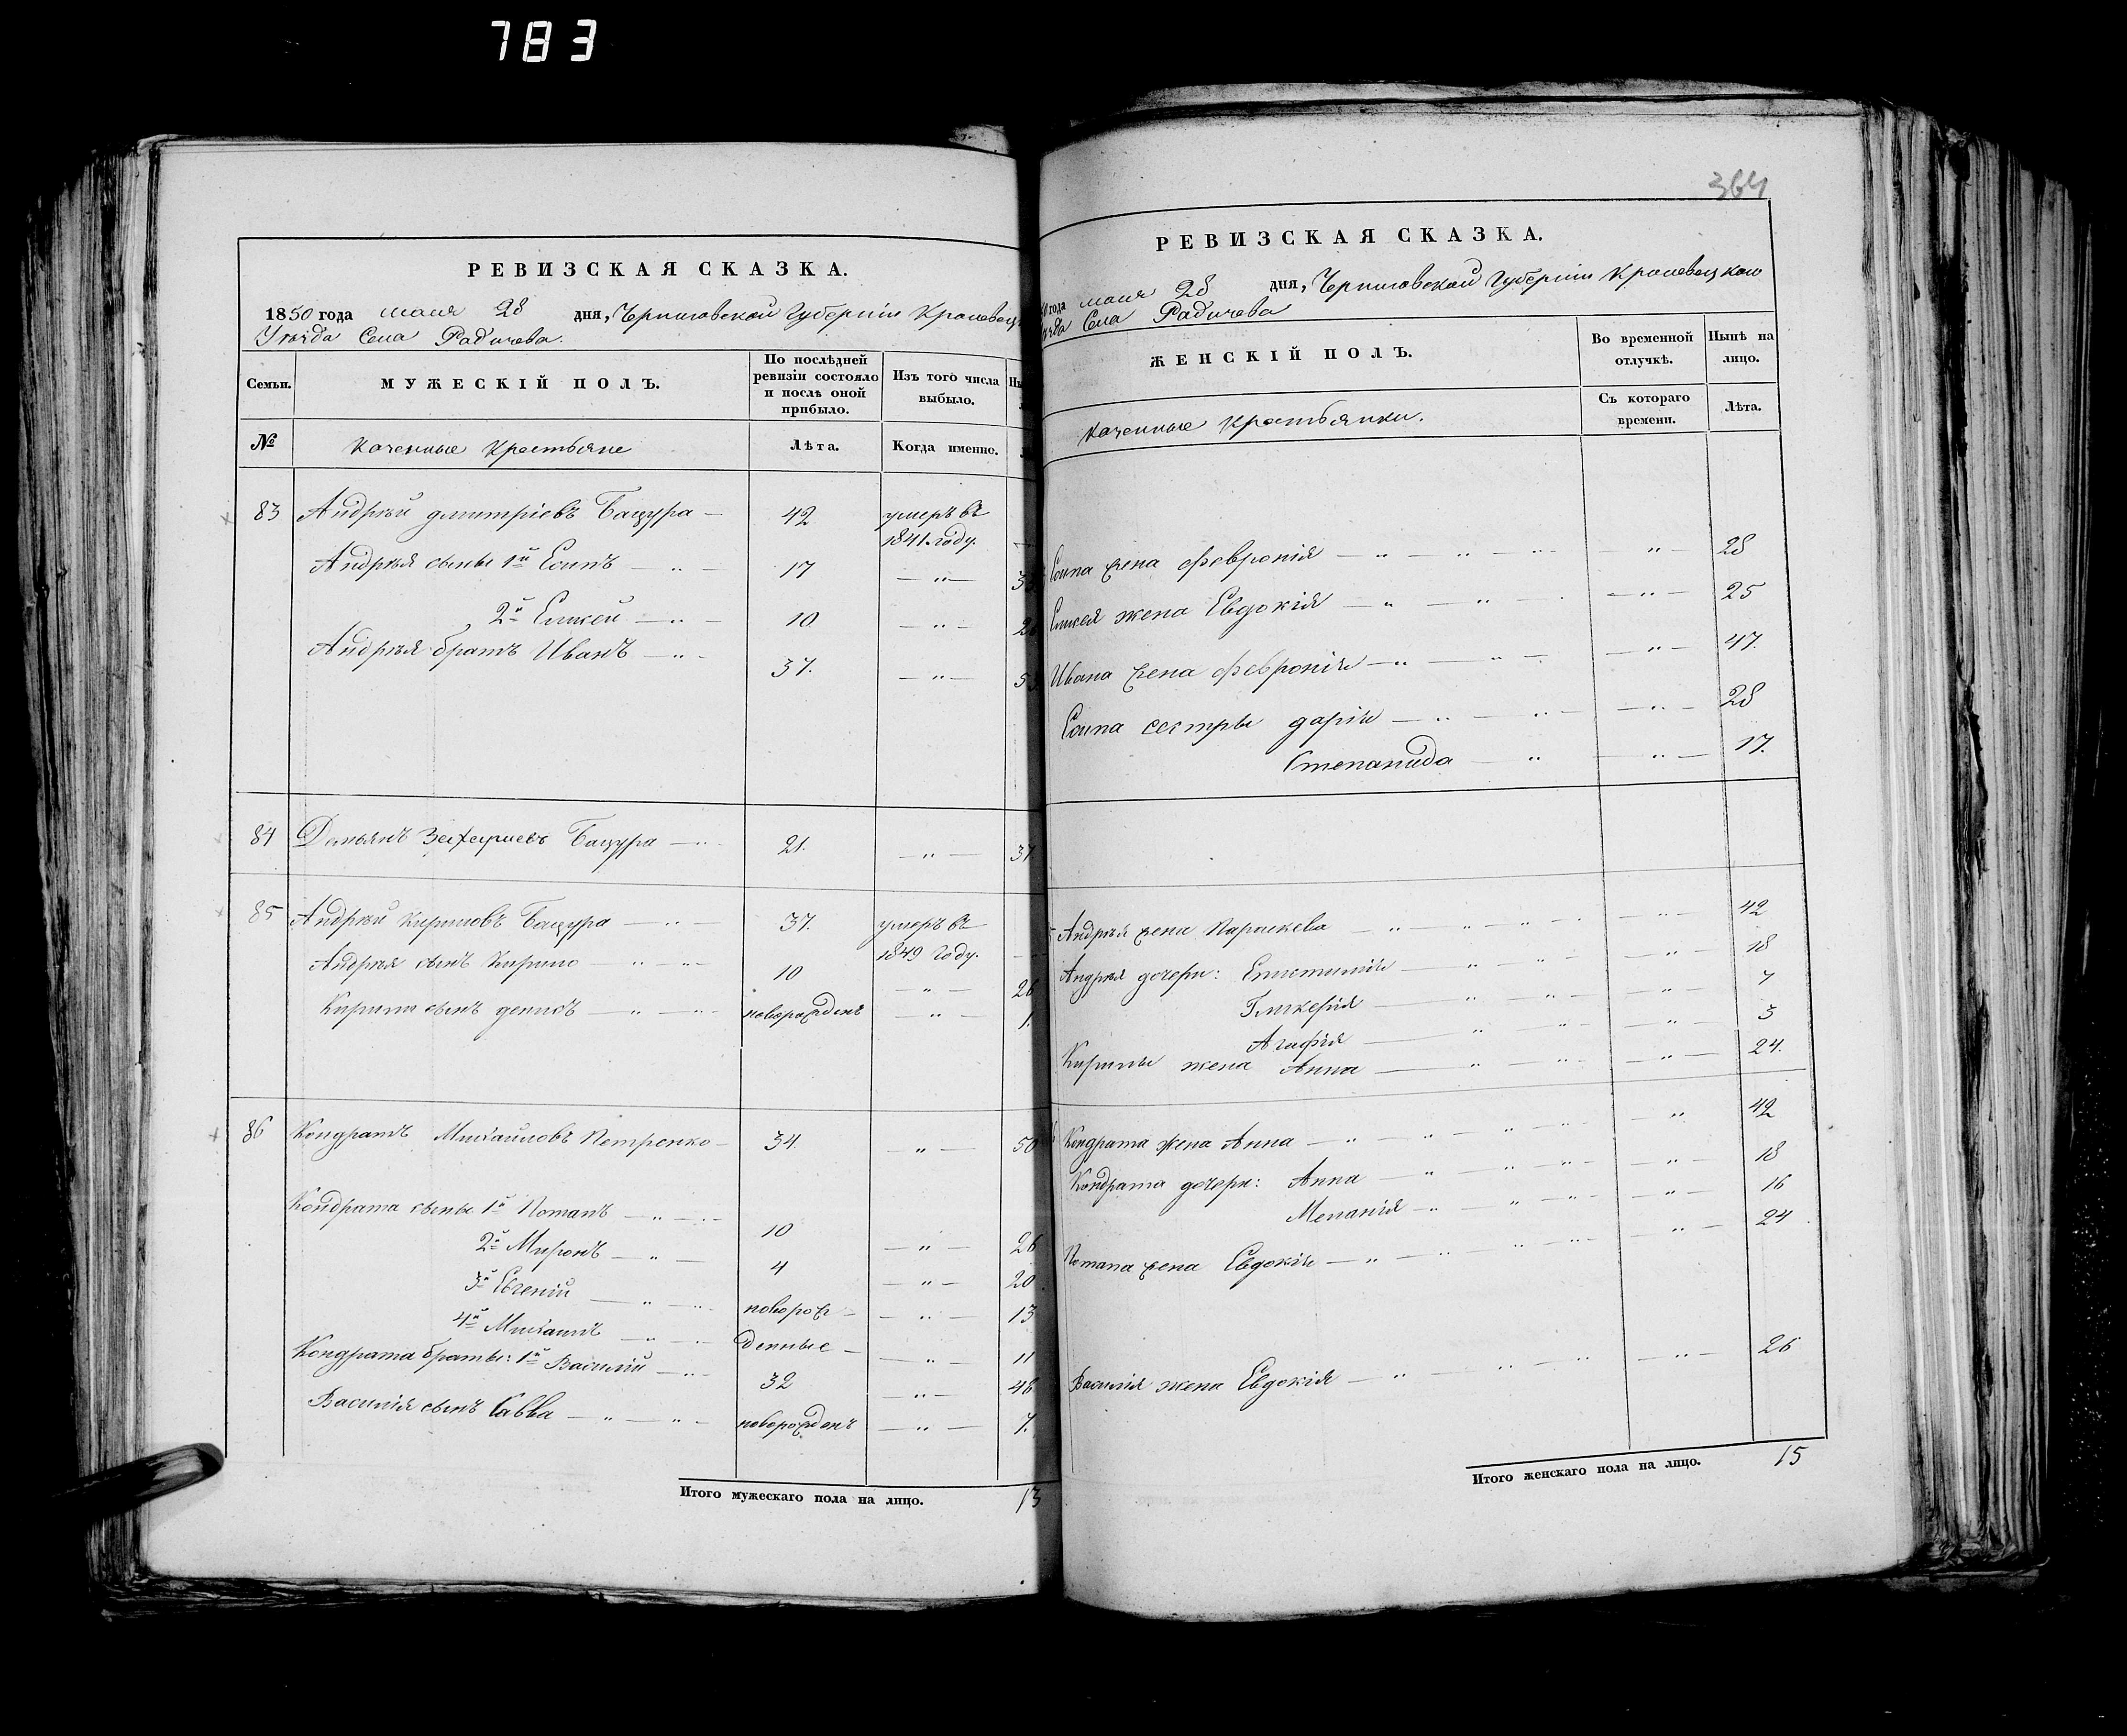 783
РЕВИЗСКАЯ СКАЗКА.
1850 года мая 28 дня, Черниговской Губерніи Кролевец
Уѣзда Села Радичева.
Семьи. МУЖЕСКІЙ ПОЛЪ. По послѣдней ревизіи состояло и послѣ оной прибыло. Изъ того числа выбыло.
№ Казенные Крестьяне Лѣта. Когда именно.
83 Андрей дмитріевъ Бацура — 42 умеръ въ
1841 году. —
Андрея сыны 1й Есипъ — " — 17 — " — 33
2й Елисей — " — 10 — " — 26
Андрея братъ Иванъ — " — 37. — " — 53
84 Демьянъ Захарьевъ Бацура — " 21. — " — 37
85 Андрей Кириловъ Бацура — " — 37. умеръ въ
1849 году. —
Андрея сынъ Кирило — " — " — 10 — " — 26
Кирила сынъ денисъ — " — " — новорожденъ — " — 1.
86 Кондратъ Михайловъ Петренко — 34. — " — 50
Кондрата сыны 1й Потапъ — " — 10 — " — 26
2й Миронъ — " — 4 — " — 20
3й Евгеній — " — новорож — — " — 13
4й Михаилъ — " — денные — — " — 11
Кондрата братъ: 1й Василій — " — 32 — " — 48
Василія сынъ Савва — " — " — новорожденъ — " — 7.
Итого мужескаго пола на лицо. 13
364
РЕВИЗСКАЯ СКАЗКА.
года мая 28 дня, Черниговской Губерніи Кролевецкого
Села Радичева
ЖЕНСКІЙ ПОЛЪ. Во временной отлучкѣ. Нынѣ на лицо.
Казенные Крестьянки. Съ котораго времени. Лѣта.
Есипа жена Февронія — " — " — " — " — 28
Елисея жена Евдокія — " — " — — " — 25
Ивана жена Февронія — " — " — — " — 47.
Есипа сестры дарія — " — " — — " — 28
Степанида — " — " — 17.
Андрея жена Параскева — " — " — " — — " — 42
Андрея дочери: — " — " — — " — 18
Гликерія — " — " — — " — 7
Агафія — " — " — — " — 3
Кирилы жена Анна — " — " — — " — 24.
Кондрата жена Анна — " — " — " — " — — " 42
Кондрата дочери: Анна — " — " — " — — " — 18
Меланія — " — " — " — — " — 16
Потапа жена Евдокія — " — " — " — " — — " — 24
Василія жена Евдокія — " — " — " — " — 26
Итого женскаго пола на лицо. 15